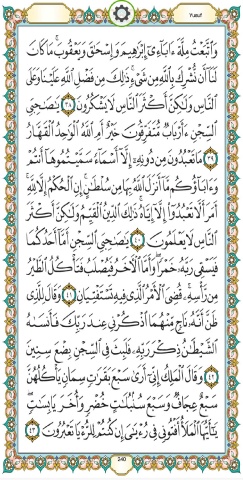 Yusuf
وَٱتَّبَعْتُ مِلَّةَ ءَابَآءِىٓ إِبْرَٰهِيمَ وَإِسْحَٰقَ وَيَعْقُوبَ ۚ مَا كَانَ
لَنَآ أَن نُّشْرِكَ بِٱللَّهِ مِن شَىْءٍ ۚ ذَٰلِكَ مِن فَضْلِ ٱللَّهِ عَلَيْنَا وَعَلَى
ٱلنَّاسِ وَلَٰكِنَّ أَكْثَرَ ٱلنَّاسِ لَا يَشْكُرُونَ ٣٨ يَٰصَٰحِبَىِ
ٱلسِّجْنِ ءَأَرْبَابٌ مُّتَفَرِّقُونَ خَيْرٌ أَمِ ٱللَّهُ ٱلْوَٰحِدُ ٱلْقَهَّارُ
٣٩ مَا تَعْبُدُونَ مِن دُونِهِۦٓ إِلَّآ أَسْمَآءً سَمَّيْتُمُوهَآ أَنتُمْ
وَءَابَآؤُكُم مَّآ أَنزَلَ ٱللَّهُ بِهَا مِن سُلْطَٰنٍ ۚ إِنِ ٱلْحُكْمُ إِلَّا لِلَّهِ ۚ
أَمَرَ أَلَّا تَعْبُدُوٓا۟ إِلَّآ إِيَّاهُ ۚ ذَٰلِكَ ٱلدِّينُ ٱلْقَيِّمُ وَلَٰكِنَّ أَكْثَرَ
ٱلنَّاسِ لَا يَعْلَمُونَ ٤٠ يَٰصَٰحِبَىِ ٱلسِّجْنِ أَمَّآ أَحَدُكُمَا
فَيَسْقِى رَبَّهُۥ خَمْرًا ۖ وَأَمَّا ٱلْءَاخَرُ فَيُصْلَبُ فَتَأْكُلُ ٱلطَّيْرُ
مِن رَّأْسِهِۦ ۚ قُضِىَ ٱلْأَمْرُ ٱلَّذِى فِيهِ تَسْتَفْتِيَانِ ٤١ وَقَالَ لِلَّذِى
ظَنَّ أَنَّهُۥ نَاجٍ مِّنْهُمَا ٱذْكُرْنِى عِندَ رَبِّكَ فَأَنسَىٰهُ
ٱلشَّيْطَٰنُ ذِكْرَ رَبِّهِۦ فَلَبِثَ فِى ٱلسِّجْنِ بِضْعَ سِنِينَ
٤٢ وَقَالَ ٱلْمَلِكُ إِنِّىٓ أَرَىٰ سَبْعَ بَقَرَٰتٍ سِمَانٍ يَأْكُلُهُنَّ
سَبْعٌ عِجَافٌ وَسَبْعَ سُنۢبُلَٰتٍ خُضْرٍ وَأُخَرَ يَابِسَٰتٍ ۖ
يَٰٓأَيُّهَا ٱلْمَلَأُ أَفْتُونِى فِى رُءْيَٰىَ إِن كُنتُمْ لِلرُّءْيَا تَعْبُرُونَ ٤٣
240